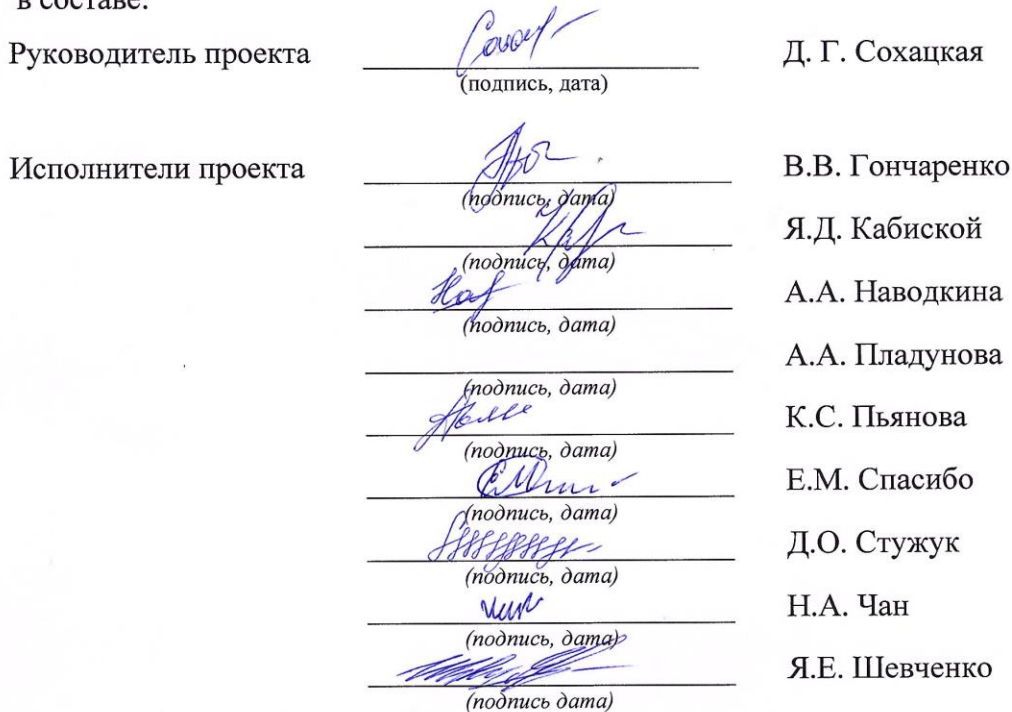 в составе:
Руководитель проекта Д. Г. Сохацкая
(подпись, дата)
Исполнители проекта В.В. Гончаренко
(подпись, дата)
Я.Д. Кабиской
(подпись, дата)
А.А. Наводкина
(подпись, дата)
А.А. Пладунова
(подпись, дата)
К.С. Пьянова
(подпись, дата)
Е.М. Спасибо
(подпись, дата)
Д.О. Стужук
(подпись, дата)
Н.А. Чан
(подпись, дата)
Я.Е. Шевченко
(подпись дата)